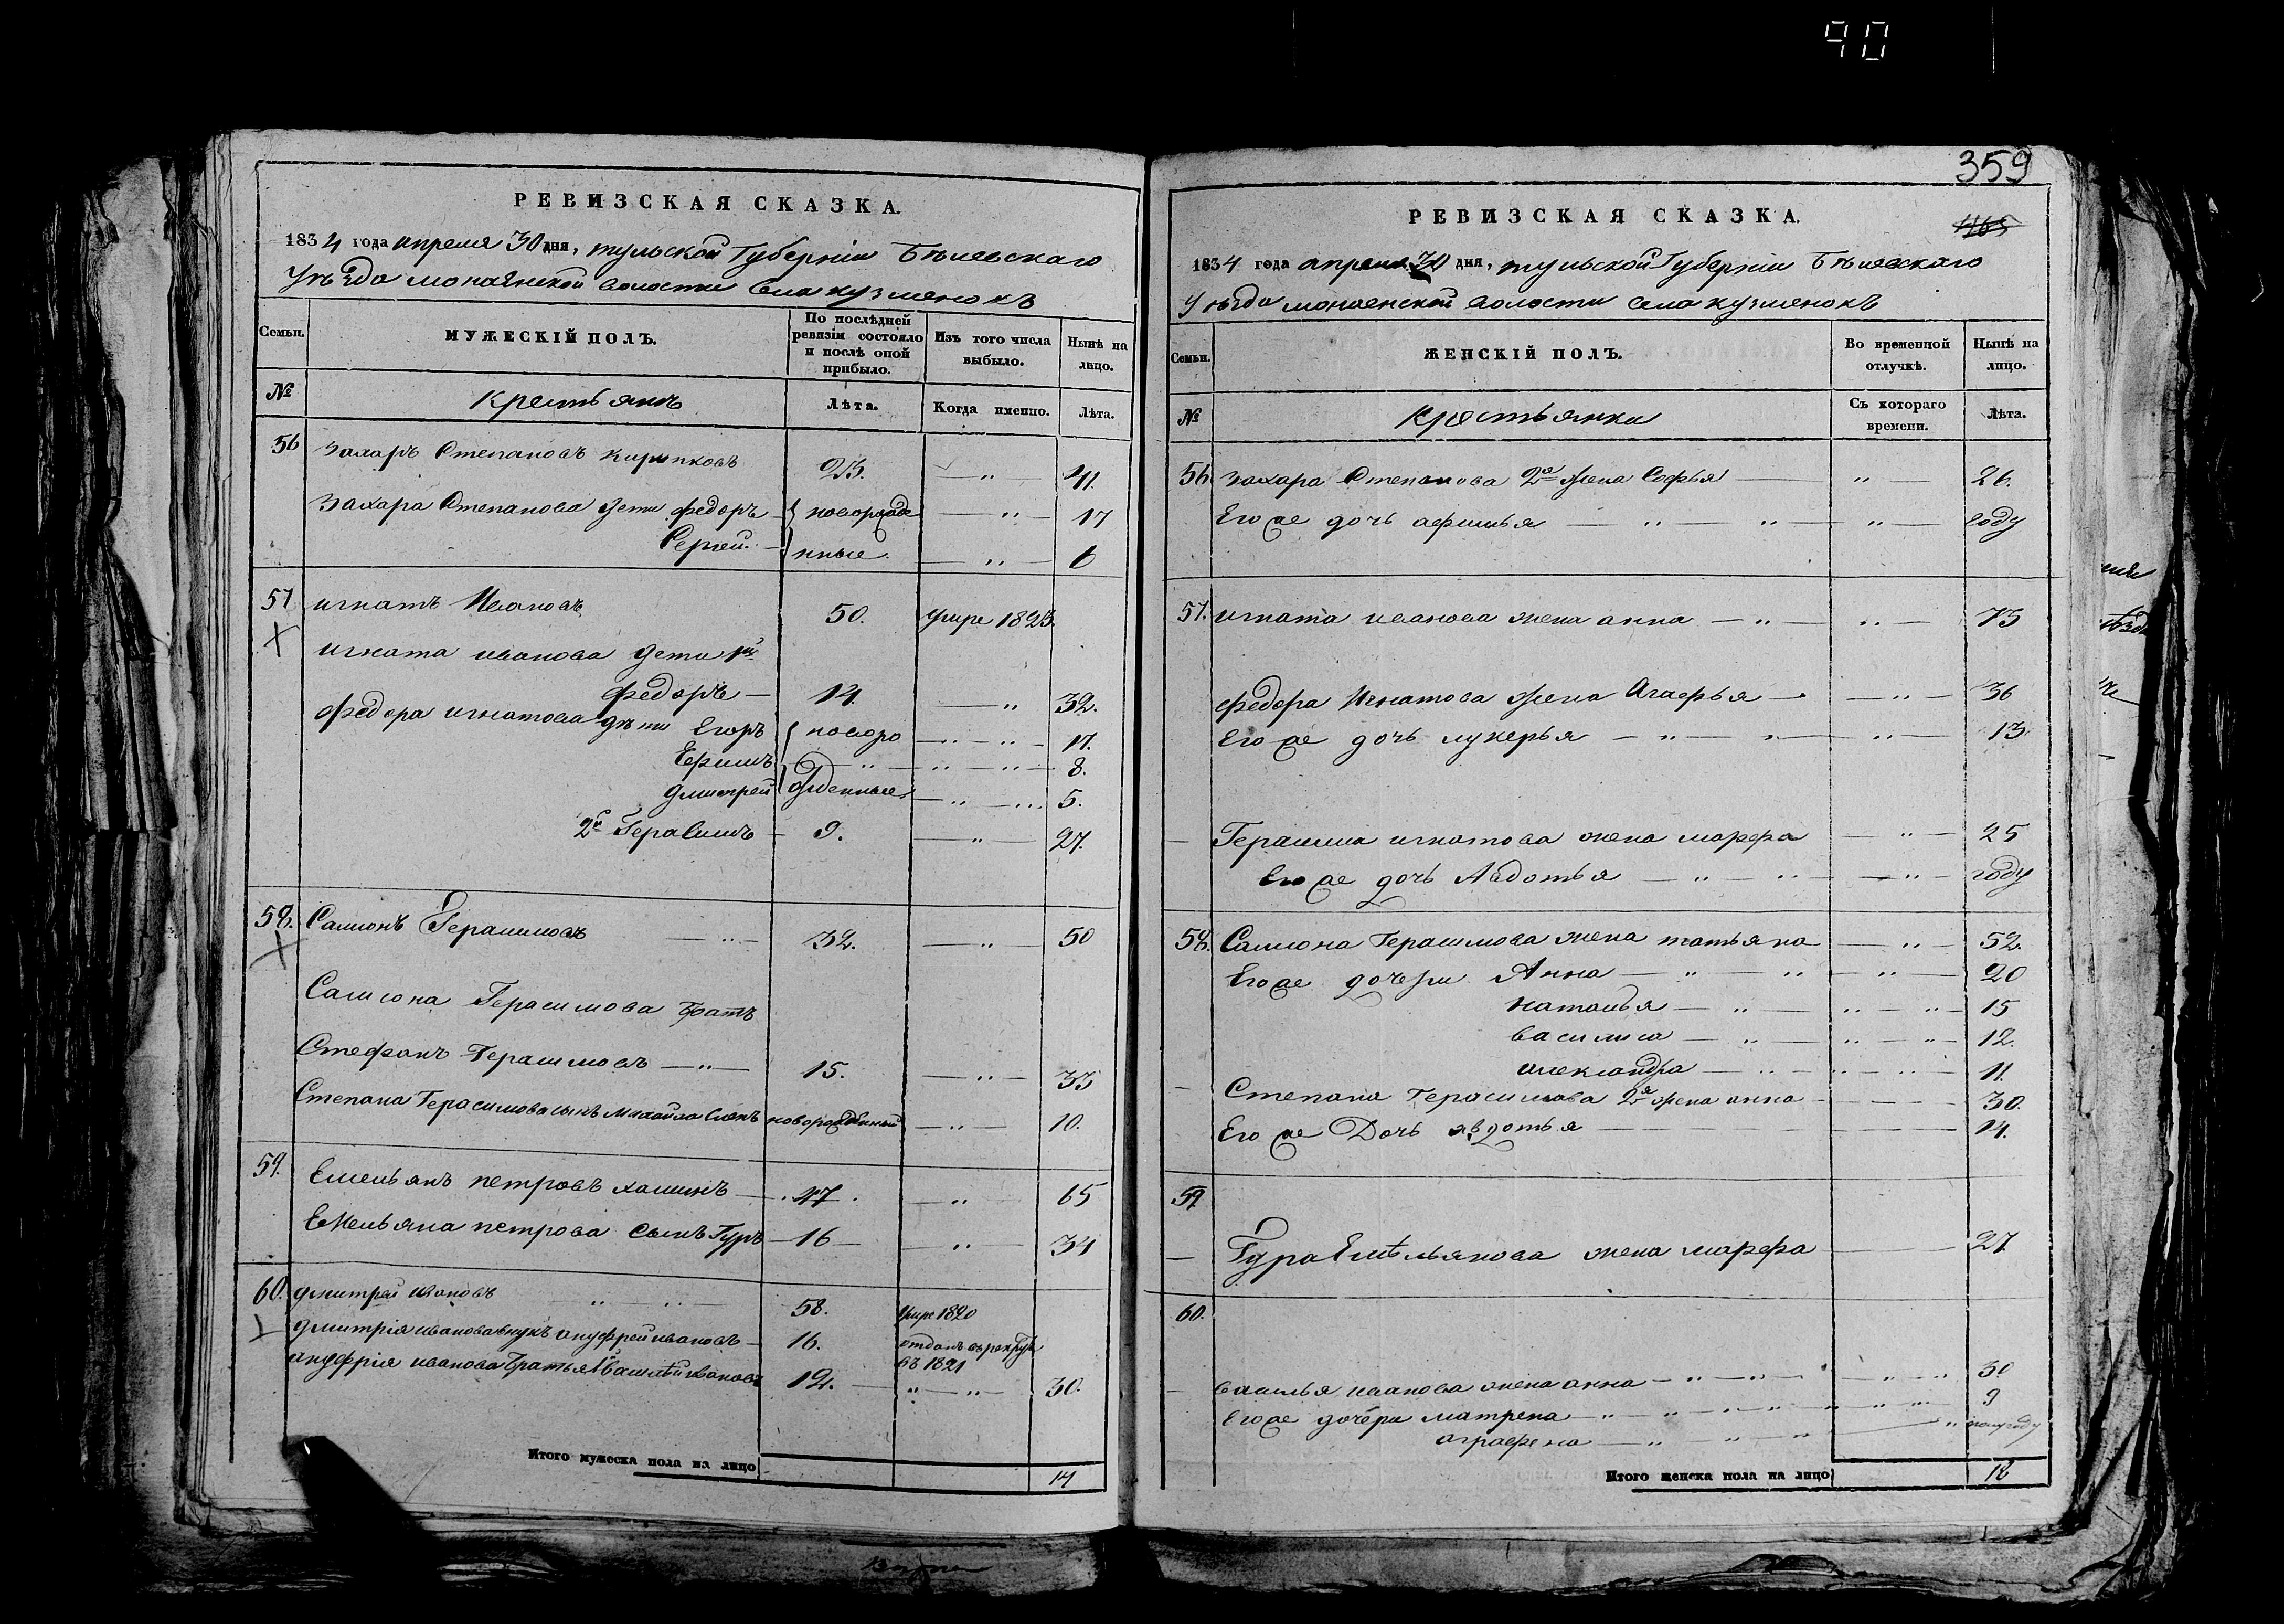 90
РЕВИЗСКАЯ СКАЗКА.
1834 года апреля 30 дня, тульской Губерніи Бѣлевскаго
Уѣзда монаенской волости села кузменокъ
Семьи.
МУЖЕСКІЙ ПОЛЪ.
По послѣдней ревизіи состояло и послѣ оной прибыло.
Изъ того числа выбыло.
Нынѣ на лицо.
№
крестьянъ
Лѣта.
Когда именно.
Лѣта.
56 Захаръ Степановъ 23. — " — 41.
Захара Степанова дети федоръ — новорожде — " — 17
Сергей. — нные. — " — 6
57 игнатъ Ивановъ 50. умре 1823.
игната иванова дети 1й
федоръ — 14. — " 32.
федора игнатова дѣти Егоръ новоро — " — " — 17.
Ефимъ — " — " — " — 8.
дмитрей жденные — " — " 5.
2й Герасимъ — 9. — " — 27.
58. Самсонъ Герасимовъ — " — 32. — " — 50
Самсона Герасимова братъ
Стефанъ Герасимовъ — " — 15. — " — 33
Степана Герасимова сынъ михайла новорожденный — " — 10.
59. Емельянъ петровъ — 47. — " — 65
Емельяна петрова сынъ Гуръ — 16 — — " — 34
60. дмитрей ивановъ " — " — 58. умре 1820
дмитрія иванова внукъ ануфрей ивановъ — 16. отданъ в рекруты
въ 1821
ануфрія иванова братья 1й василей ивановъ 12. — " — " — 30.
Итого мужеска пола на лицо 14
359
465
РЕВИЗСКАЯ СКАЗКА.
1834 года апреля 30 дня, тульской Губерніи Бѣлевскаго
Уѣзда монаенской волости села кузменокъ
Семьи.
ЖЕНСКІЙ ПОЛЪ.
Во временной отлучкѣ.
Нынѣ на лицо.
№
крестьянки
Съ котораго времени.
Лѣта.
56 Захара Степанова 2я жена Софья — " — 26.
Его же дочь афимья — " " — " — году
57. игната иванова жена анна — " — " — 73
федора Игнатова жена Агафья — — " — 36
Его же дочь лукерья — " — " — " — 13
— Герасима игнатова жена марфа — " — 25
Его же дочь Авдотья — " — " — " — году
58. Самсона Герасимова жена татьяна — " — 52.
Его же дочери Анна — " — " — " — 20
наталья — " — " — " — 15
василиса — " — " — " — 12.
александра — " — " — " — 11.
— Степана Герасимова 2я жена анна — — — 30.
Его же Дочь авдотья — — — 14.
59
— Гура Емѣльянова жена марфа — 27.
60.
— василья иванова жена анна — " — " — " — " 30
Его же дочери матрена — " — " — " — " 9
аграфена — " " — " " полугоду
Итого женска пола на лицо 18